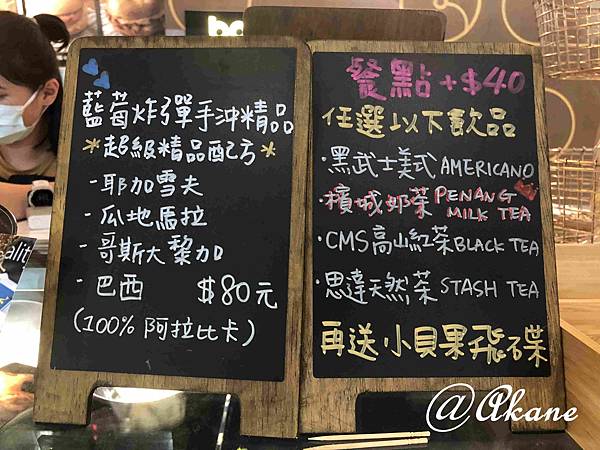 藍莓炸彈手沖精品
*超級精品配方*
-耶加雪夫
-瓜地馬拉
-哥斯大黎加
-巴西 $80元
(100%阿拉比卡)
餐點+$40
任選以下飲品
·黑武士美式 AMERICANO
·檳城奶茶 PENANG MILK TEA
·CMS高山紅茶 BLACK TEA
·思達天然茶 STASH TEA
再送小貝果飛碟
@Akane